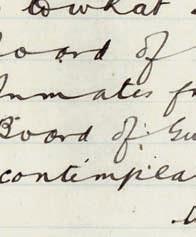 to what
Board of
Inmates fr
Board of Gu
contempla